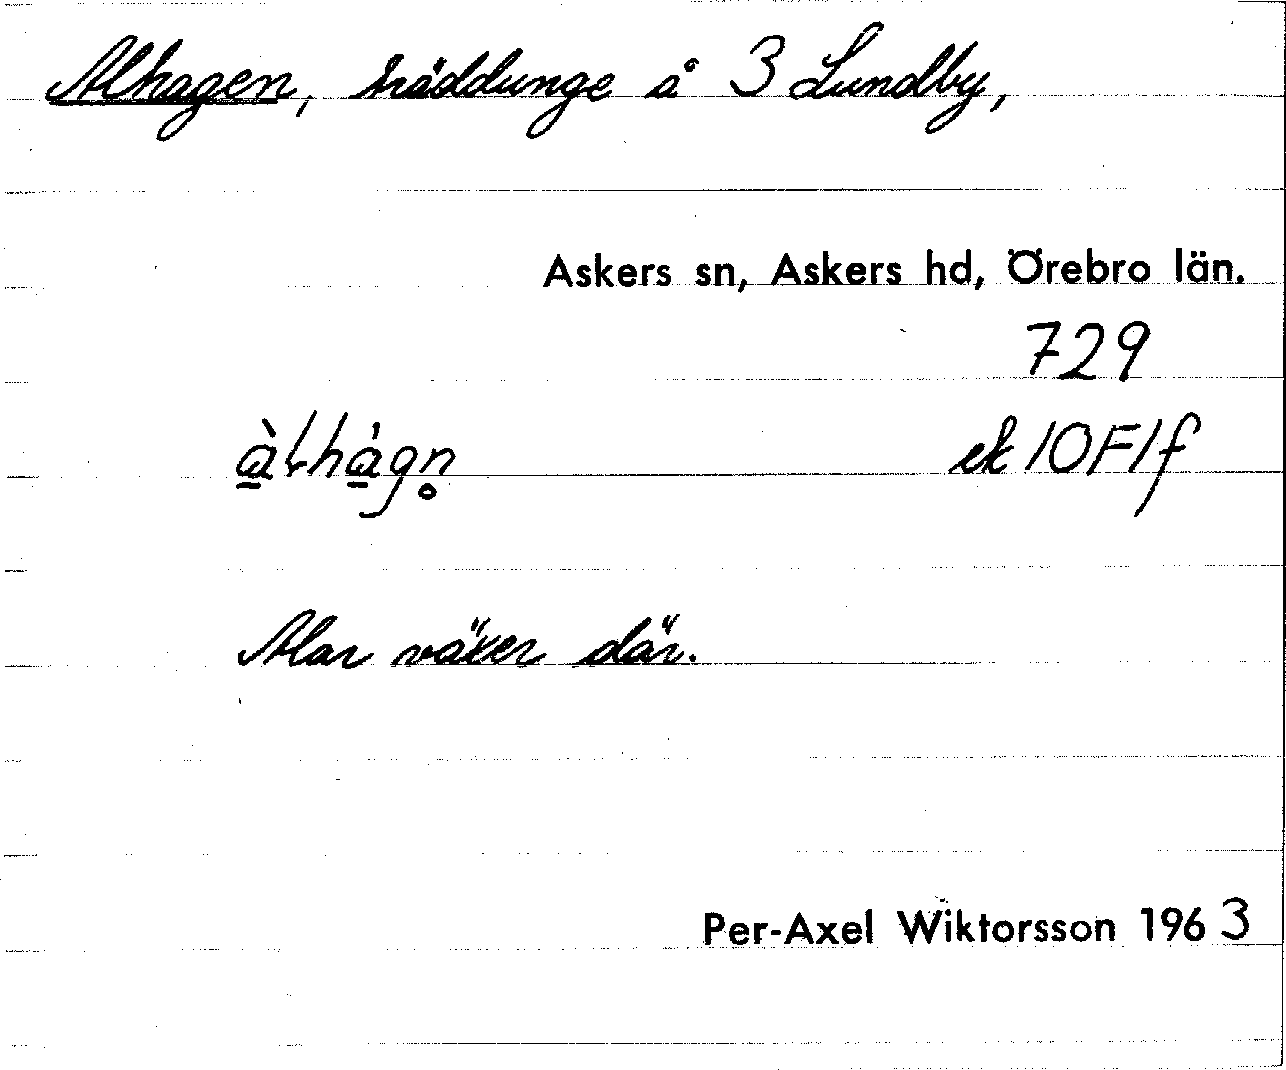 Alhagen, träddunge å 3 Lundby,
Askers sn, Askers hd, Örebro län.
729
à̱lha̱̍gn̥ ek 10F1f
Alar växer där.
Per-Axel Wiktorsson 1963